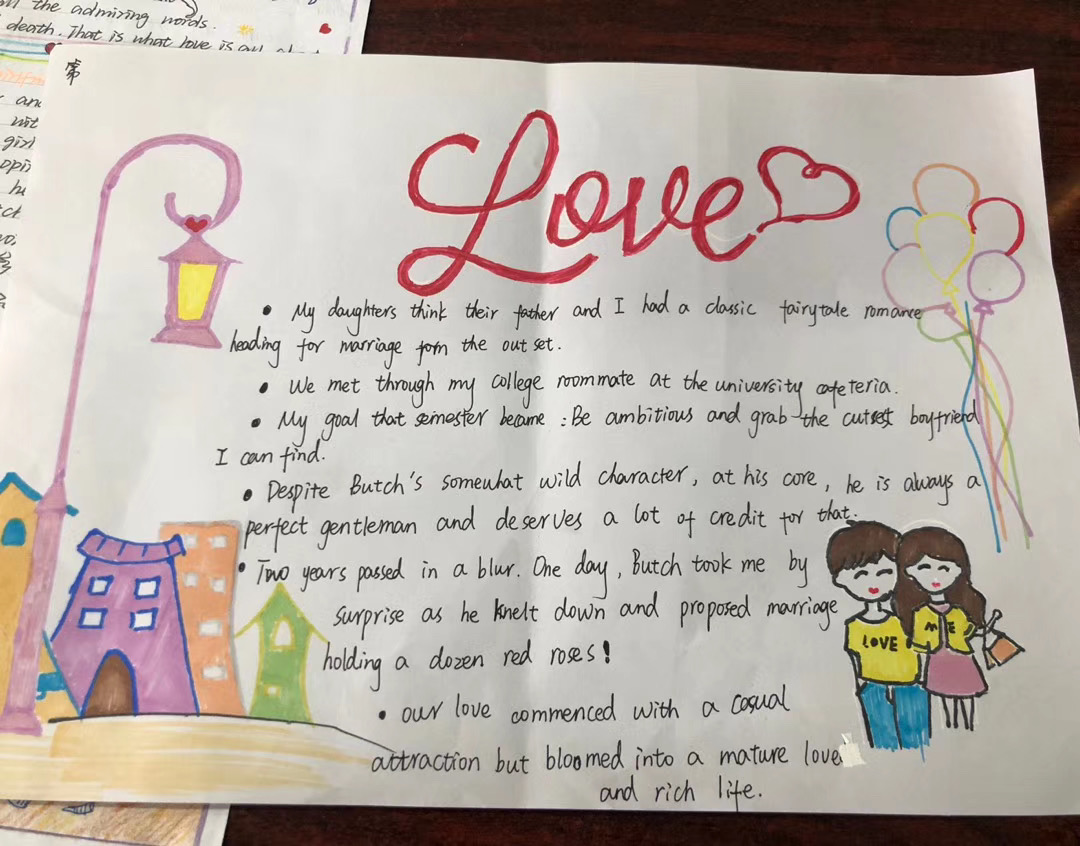 all the admiring words.
death. That is what love is all
常
Love
• My daughters think their father and I had a classic fairytale romance
heading for marriage fom the out set.
• We met through my college roommate at the university cafeteria.
• My goal that semester became : Be ambitious and grab the cutset boyfriend
I can find.
• Despite Butch's somewhat wild character, at his core, he is always a
perfect gentleman and deserves a lot of credit for that.
• Two years passed in a blur. One day, Butch took me by
surprise as he knelt down and proposed marriage
holding a dozen red roses!
LOVE
ME
• our love commenced with a casual
attraction but bloomed into a mature love
and rich life.